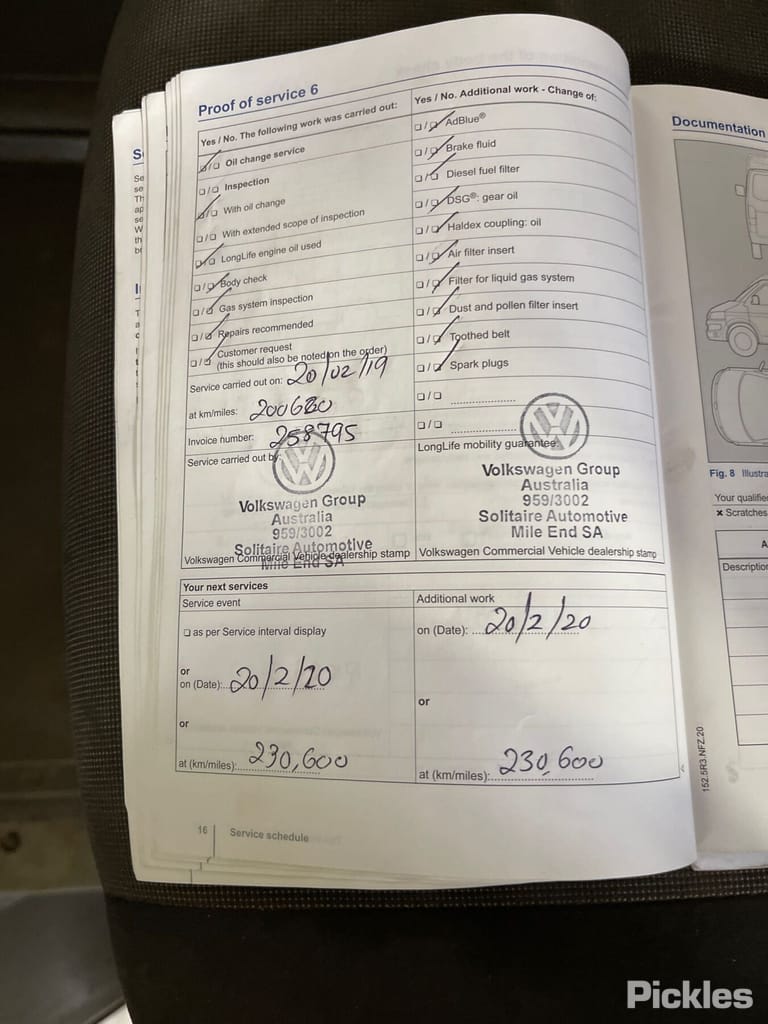 Proof of service 6
Yes / No. The following work was carried out:
Oil change service
Inspection
With oil change
With extended scope of inspection
LongLife engine oil used
Body check
Gas system inspection
Repairs recommended
Customer request
(this should also be noted on the order)
Service carried out on: 20/02/19
at km/miles: 200680
Invoice number: 258795
Service carried out by:
Volkswagen Group
Australia
959/3002
Solitaire Automotive
Mile End SA
Volkswagen Commercial Vehicle dealership stamp
Yes / No. Additional work - Change of:
AdBlue®
Brake fluid
Diesel fuel filter
DSG®: gear oil
Haldex coupling: oil
Air filter insert
Filter for liquid gas system
Dust and pollen filter insert
Toothed belt
Spark plugs
LongLife mobility guarantee:
Volkswagen Group
Australia
959/3002
Solitaire Automotive
Mile End SA
Volkswagen Commercial Vehicle dealership stamp
Your next services
Service event
as per Service interval display
or
on (Date): 20/2/20
or
at (km/miles): 230,600
Additional work
on (Date): 20/2/20
or
at (km/miles): 230,600
16 Service schedule
Documentation
Fig. 8 Illustra
Your qualifie
× Scratches
A
Description
152.5R3.NFZ.20
Pickles